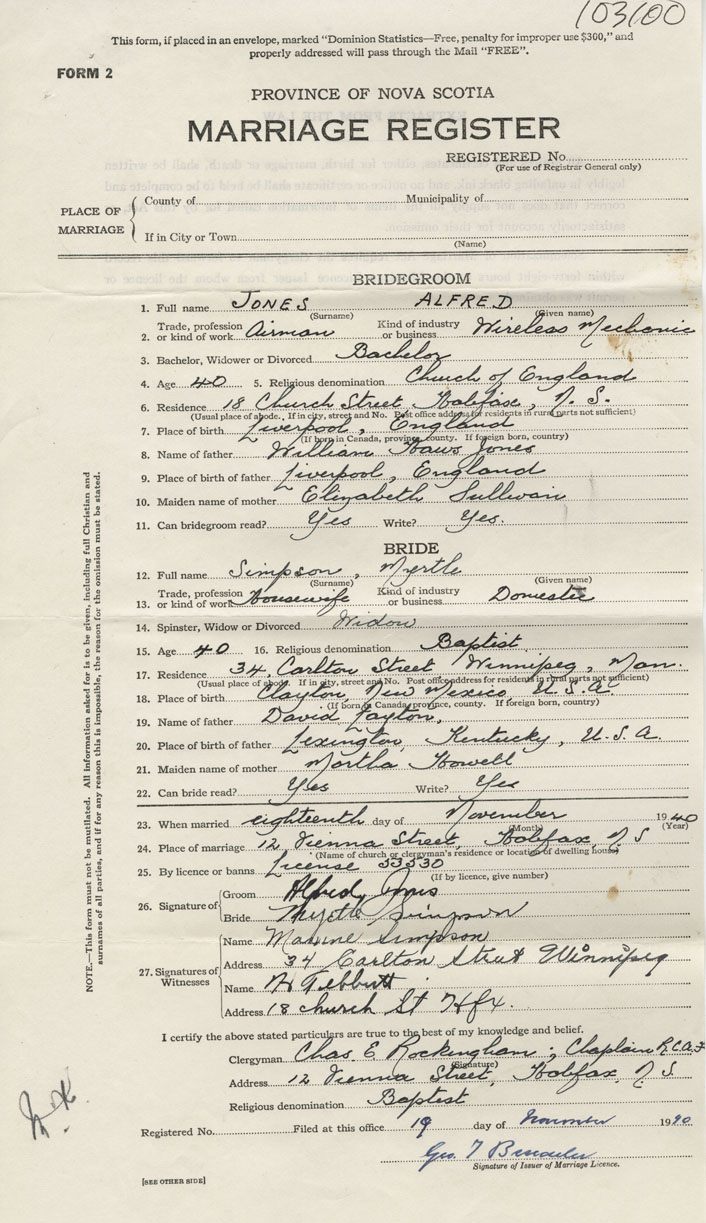 103100
This form, if placed in an envelope, marked "Dominion Statistics—Free, penalty for improper use $300," and
properly addressed will pass through the Mail "FREE".
FORM 2
PROVINCE OF NOVA SCOTIA
MARRIAGE REGISTER
REGISTERED No.
(For use of Registrar General only)
PLACE OF MARRIAGE
County of Municipality of
If in City or Town
(Name)
BRIDEGROOM
1. Full name JONES ALFRED
(Surname) (Given name)
2. Trade, profession or kind of work Airman Kind of industry or business Wireless Mechanic
3. Bachelor, Widower or Divorced Bachelor
4. Age 40 5. Religious denomination Church of England
6. Residence 18 Church Street, Halifax, N. S.
(Usual place of abode. If in city, street and No. Post office address for residents in rural parts not sufficient)
7. Place of birth Liverpool, England
(If born in Canada, province, county. If foreign born, country)
8. Name of father William Jones
9. Place of birth of father Liverpool, England
10. Maiden name of mother Elizabeth Sullivan
11. Can bridegroom read? Yes Write? Yes.
BRIDE
12. Full name Simpson, Myrtle
(Surname) (Given name)
13. Trade, profession or kind of work Housewife Kind of industry or business Domestic
14. Spinster, Widow or Divorced Widow
15. Age 40 16. Religious denomination Baptist
17. Residence 34, Carlton Street Winnipeg, Man.
(Usual place of abode. If in city, street and No. Post office address for residents in rural parts not sufficient)
18. Place of birth Clayton, New Mexico, U.S.A.
(If born in Canada, province, county. If foreign born, country)
19. Name of father David
20. Place of birth of father Lexington, Kentucky, U.S.A.
21. Maiden name of mother Martha Howell
22. Can bride read? Yes Write? Yes
23. When married eighteenth day of November 1940
(Month) (Year)
24. Place of marriage 12, Vienna Street, Halifax, N S
(Name of church or clergyman's residence or location of dwelling house)
25. By licence or banns License 53530
(If by licence, give number)
26. Signature of
Groom Alfred Jones
Bride Myrtle Simpson
27. Signatures of Witnesses
Name Simpson
Address 34 Carlton Street Winnipeg
Name H Tebbutt
Address 18 Church St Hfx.
I certify the above stated particulars are true to the best of my knowledge and belief.
Clergyman Chas. E. Rockingham; Chaplain R.C.A.F
(Signature)
Address 12 Vienna Street, Halifax, N. S.
Religious denomination Baptist
Registered No. Filed at this office 19 day of November 1940
Geo. T
Signature of Issuer of Marriage Licence.
[SEE OTHER SIDE]
NOTE.—This form must not be mutilated. All information asked for is to be given, including full Christian and
surnames of all parties, and if for any reason this is impossible, the reason for the omission must be stated.